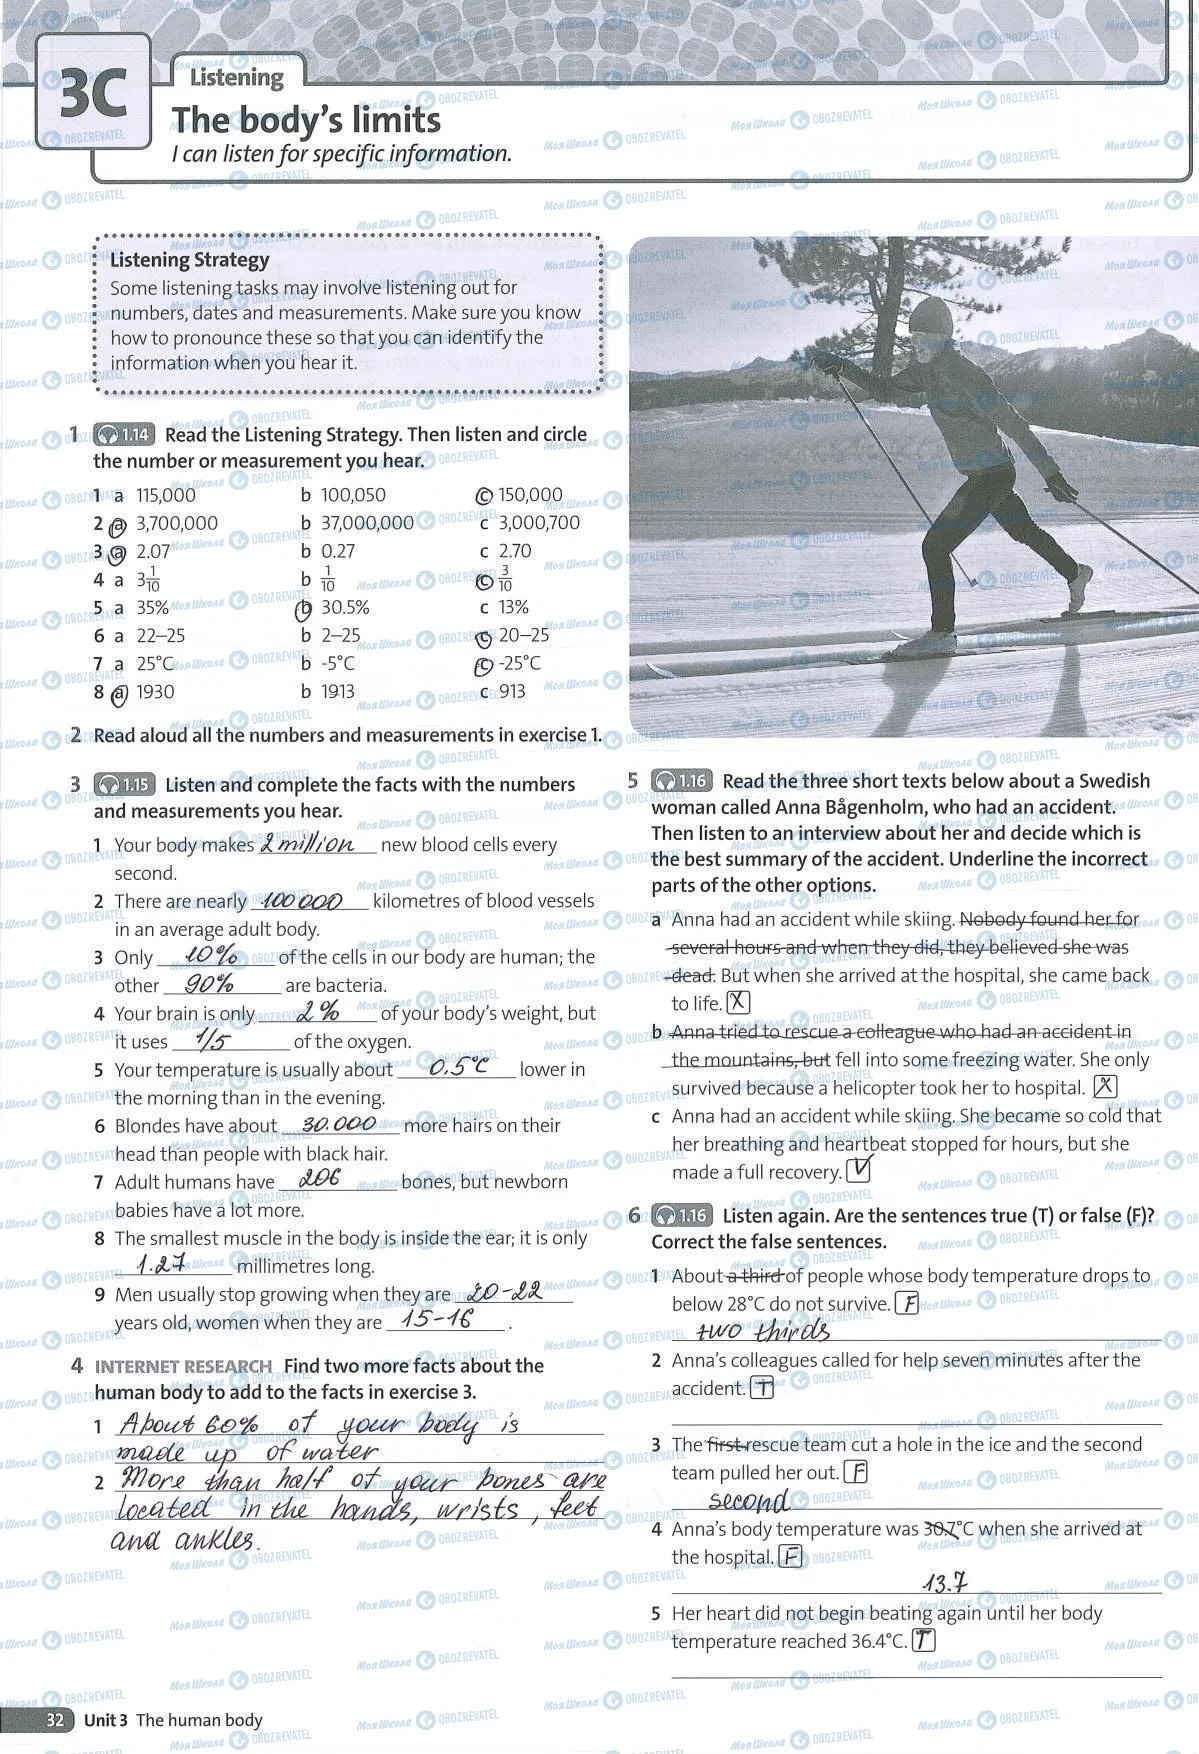 3C
Listening
The body's limits
I can listen for specific information.
Listening Strategy
Some listening tasks may involve listening out for
numbers, dates and measurements. Make sure you know
how to pronounce these so that you can identify the
information when you hear it.
1 1.14 Read the Listening Strategy. Then listen and circle
the number or measurement you hear.
1 a 115,000 b 100,050 c 150,000
2 a 3,700,000 b 37,000,000 c 3,000,700
3 a 2.07 b 0.27 c 2.70
4 a 3 1/10 b 1/10 c 3/10
5 a 35% b 30.5% c 13%
6 a 22–25 b 2–25 c 20–25
7 a 25°C b -5°C c -25°C
8 a 1930 b 1913 c 913
2 Read aloud all the numbers and measurements in exercise 1.
3 1.15 Listen and complete the facts with the numbers
and measurements you hear.
1 Your body makes 2 million new blood cells every
second.
2 There are nearly 100 000 kilometres of blood vessels
in an average adult body.
3 Only 10% of the cells in our body are human; the
other 90% are bacteria.
4 Your brain is only 2% of your body's weight, but
it uses 1/5 of the oxygen.
5 Your temperature is usually about 0.5°C lower in
the morning than in the evening.
6 Blondes have about 30.000 more hairs on their
head than people with black hair.
7 Adult humans have 206 bones, but newborn
babies have a lot more.
8 The smallest muscle in the body is inside the ear; it is only
1.27 millimetres long.
9 Men usually stop growing when they are 20-22
years old, women when they are 15-16 .
4 INTERNET RESEARCH Find two more facts about the
human body to add to the facts in exercise 3.
1 About 60% of your body is
made up of water
2 More than half of your bones are
located in the hands, wrists, feet
and ankles.
5 1.16 Read the three short texts below about a Swedish
woman called Anna Bågenholm, who had an accident.
Then listen to an interview about her and decide which is
the best summary of the accident. Underline the incorrect
parts of the other options.
a Anna had an accident while skiing. Nobody found her for
several hours and when they did, they believed she was
dead. But when she arrived at the hospital, she came back
to life. X
b Anna tried to rescue a colleague who had an accident in
the mountains, but fell into some freezing water. She only
survived because a helicopter took her to hospital. X
c Anna had an accident while skiing. She became so cold that
her breathing and heartbeat stopped for hours, but she
made a full recovery. V
6 1.16 Listen again. Are the sentences true (T) or false (F)?
Correct the false sentences.
1 About a third of people whose body temperature drops to
below 28°C do not survive. F
two thirds
2 Anna's colleagues called for help seven minutes after the
accident. T
3 The first rescue team cut a hole in the ice and the second
team pulled her out. F
second
4 Anna's body temperature was 30.7°C when she arrived at
the hospital. F
13.7
5 Her heart did not begin beating again until her body
temperature reached 36.4°C. T
32 Unit 3 The human body
Моя Школа OBOZREVATEL